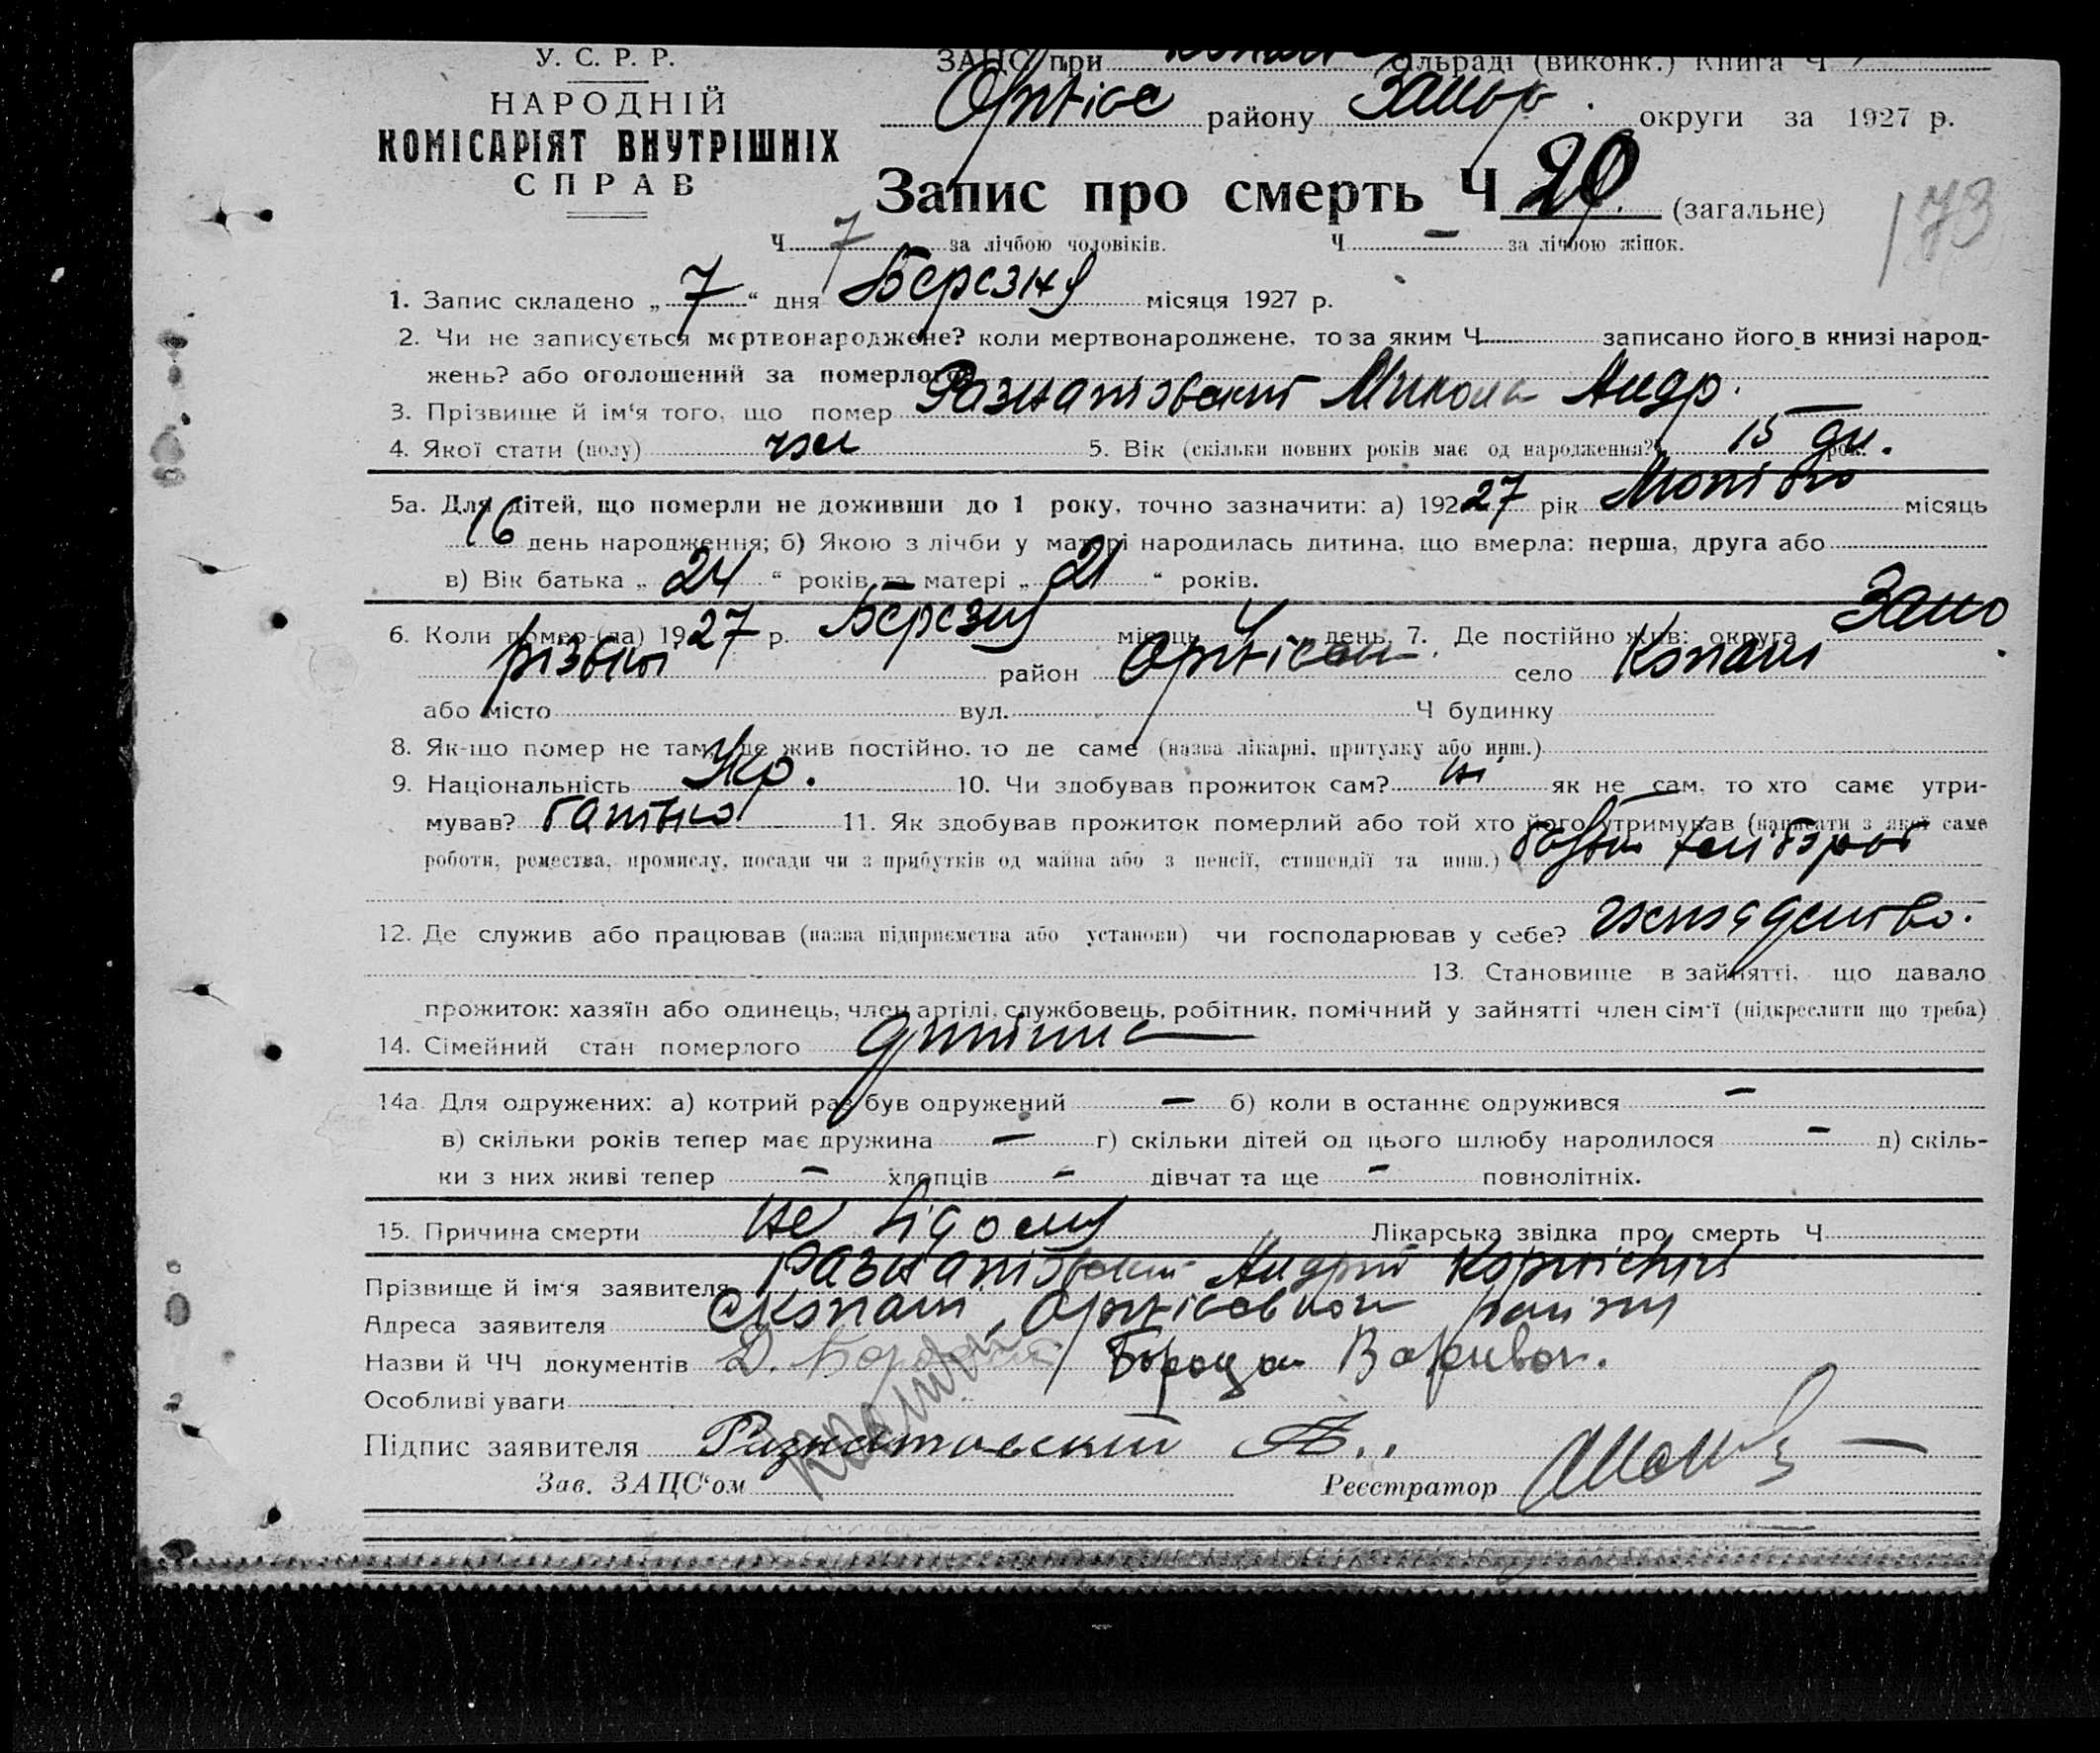 У. С. Р. Р.
НАРОДНІЙ
КОМІСАРІЯТ ВНУТРІШНІХ
СПРАВ
ЗАЦС при сільраді (виконк.) Книга Ч
Оріхів району Запор. округи за 1927 р.
Запис про смерть Ч 20 (загальне)
173
Ч 7 за лічбою чоловіків. Ч — за лічбою жінок.
1. Запис складено „ 7 “ дня Березня місяця 1927 р.
2. Чи не записується мертвонароджене? коли мертвонароджене, то за яким Ч записано його в книзі народ-
жень? або оголошений за померлого
3. Прізвище й ім‘я того, що помер Разнатовский Микола Андр.
4. Якої стати (полу) чол 5. Вік (скільки повних років має од народження?) 15 дн. рок.
5а. Для дітей, що померли не доживши до 1 року, точно зазначити: а) 192 27 рік місяць
16 день народження; б) Якою з лічби у матері народилась дитина, що вмерла: перша, друга або
в) Вік батька „ 24 “ років та матері „ 21 “ років.
6. Коли помер-(ла) 19 27 р. Березня місяць день. 7. Де постійно жив: округа Запо
різький район Оріхівськ. село Копані
або місто вул. Ч будинку
8. Як-що помер не там, де жив постійно, то де саме (назва лікарні, притулку або инш.)
9. Національність Укр. 10. Чи здобував прожиток сам? ні як не сам, то хто саме утри-
мував? батько 11. Як здобував прожиток померлий або той хто його утримував (написати з якої саме
роботи, ремества, промислу, посади чи з прибутків од майна або з пенсії, стипендії та инш.) хлібороб
12. Де служив або працював (назва підприємства або установи) чи господарював у себе?
13. Становище в зайнятті, що давало
прожиток: хазяїн або одинець, член артілі, службовець, робітник, помічний у зайнятті член сім‘ї (підкреслити що треба)
14. Сімейний стан померлого дитина
14а. Для одружених: а) котрий раз був одружений — б) коли в останнє одружився —
в) скільки років тепер має дружина — г) скільки дітей од цього шлюбу народилося — д) скіль-
ки з них живі тепер — хлопців — дівчат та ще — повнолітніх.
15. Причина смерти не відома Лікарська звідка про смерть Ч
Прізвище й ім‘я заявителя Разнатовський Андрій
Адреса заявителя с Копані, Оріхівського району
Назви й ЧЧ документів
Особливі уваги
Підпис заявителя Разнатовский А.
Зав. ЗАЦС‘ом Реєстратор